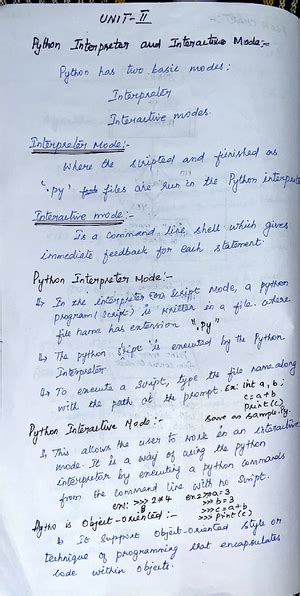 UNIT-II
Python Interpreter and Interactive Mode:-
Python has two basic modes:
Interpreter
Interactive modes.
Interpreter Mode:-
Where the scripted and finished as
'.py' files are run in the Python interpreter
Interactive mode:-
Is a command line shell which gives
immediate feedback for each statement.
Python Interpreter Mode:-
In the interpreter Script Mode, a python
program (Script) is written in a file. where
file name has extension ".py"
The python is executed by the Python
Interpreter
To execute a script, type the file name along
with the path at the prompt. Ex: int a, b;
c=a+b
Print(c)
Save as Sample.py.
Python Interactive Mode:-
This allows the user to work in an interactive
mode. It is a way of using the python
interpreter by executing a python commands
from the command line with no Script.
ex1: >>> 2*4
8
ex2 >>> a=3
>>> b=3
>>> c=a+b
>>> Print(c)
Pytho is Object-Oriented:-
It support Object-Oriented style or
technique of programming that encapsulates
code within objects.